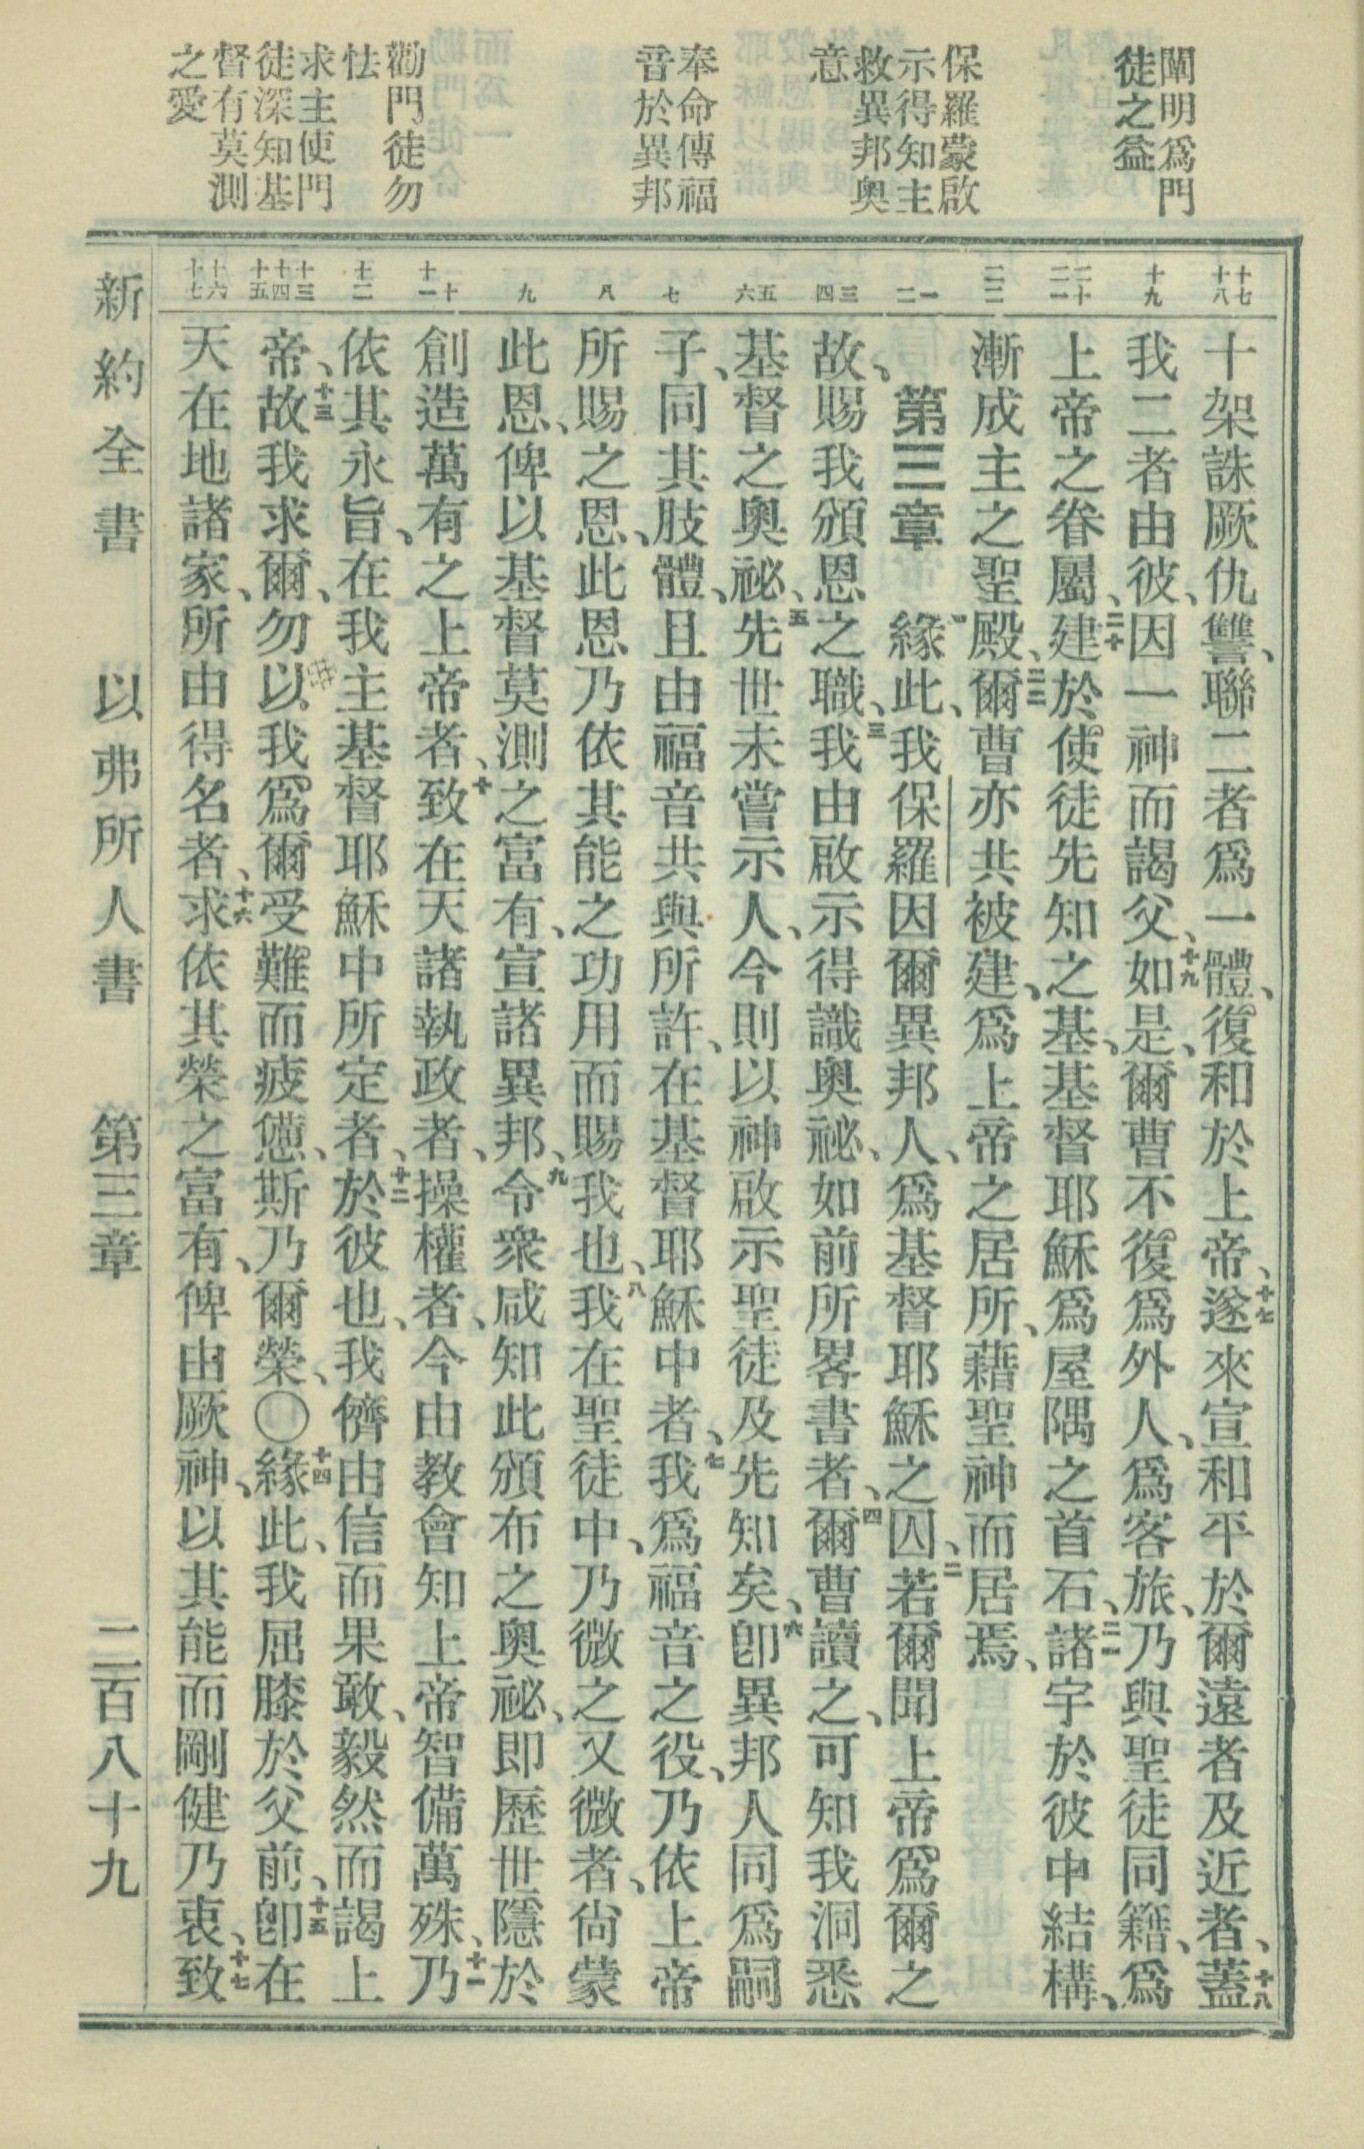 闡明爲門
徒之益
保羅蒙啟
示得知主
救異邦奧
意
奉命傳福
音於異邦
勸門徒勿
怯
求主使門
徒深知基
督有莫測
之愛
十七
十八
十九
二十
二一
二二
一
二
三
四
五
六
七
八
九
十
十一
十二
十三
十四
十五
十六
十七
十架誅厥仇讐、聯二者爲一體、復和於上帝、十七遂來宣和平於爾遠者及近者、十八蓋
我二者由彼、因一神而謁父、十九如是、爾曹不復爲外人、爲客旅、乃與聖徒同籍、爲
上帝之眷屬、二十建於使徒先知之基、基督耶穌爲屋隅之首石、二一諸宇於彼中結構、
漸成主之聖殿、二二爾曹亦共被建、爲上帝之居所、藉聖神而居焉、
第三章 一緣此、我保羅因爾異邦人、爲基督耶穌之囚、二若爾聞上帝爲爾之
故、賜我頒恩之職、三我由啟示得識奧祕、如前所畧書者、四爾曹讀之、可知我洞悉
基督之奧祕、五先世未嘗示人、今則以神啟示聖徒及先知矣、六卽異邦人同爲嗣
子、同其肢體、且由福音共與所許、在基督耶穌中者、七我爲福音之役、乃依上帝
所賜之恩、此恩乃依其能之功用而賜我也、八我在聖徒中、乃微之又微者、尙蒙
此恩、俾以基督莫測之富有、宣諸異邦、九令衆咸知此頒布之奧祕、即歷世隱於
創造萬有之上帝者、十致在天諸執政者、操權者、今由教會知上帝智備萬殊、十一乃
依其永旨、在我主基督耶穌中所定者、十二於彼也、我儕由信而果敢、毅然而謁上
帝、十三故我求爾、勿以我爲爾受難而疲憊、斯乃爾榮、〇十四緣此、我屈膝於父前、十五卽在
天在地諸家、所由得名者、十六求依其榮之富有、俾由厥神、以其能而剛健乃衷、十七致
新約全書 以弗所人書 第三章 二百八十九